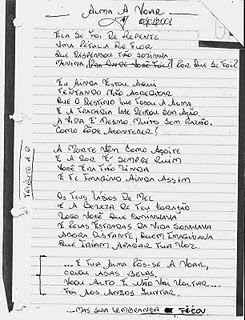 ALMA A VOAR...
ELA SE FOI DE REPENTE
UMA PÉTALA DE FLOR
QUE DESPENCOU TÃO SOZINHA
MENINA, POR ONDE VOCÊ FOI? POR QUE SE FOI?
EU AINDA ESTOU AQUI
TENTANDO NÃO ACREDITAR
QUE O DESTINO LHE TOCOU A ALMA
E A TRAGÉDIA LHE DEIXOU SEM AÇÃO
A VIDA É MESMO MUITO SEM RAZÃO.
COMO PÔDE ACONTECER?
A MORTE VEM COMO AÇOITE
E A DOR É SEMPRE RUIM
VOCÊ ERA TÃO LINDA
E TE IMAGINO AINDA ASSIM
OS TEUS LÁBIOS DE MEL
E A BELEZA DE TEU CORAÇÃO
LOGO VOCÊ QUE CAMINHAVA
E PELAS ESTRADAS DA VIDA SONHAVA
AGORA DISTANTE, QUEM IMAGINAVA
QUE IRIAM APAGAR TUA VOZ.
... E TUA ALMA PÔS-SE A VOAR,
CRIOU ASAS BELAS
VOOU ALTO E NÃO VAI VOLTAR...
FOI AOS ANJOS JUNTAR.
... MAS SUA LEMBRANÇA FICOU